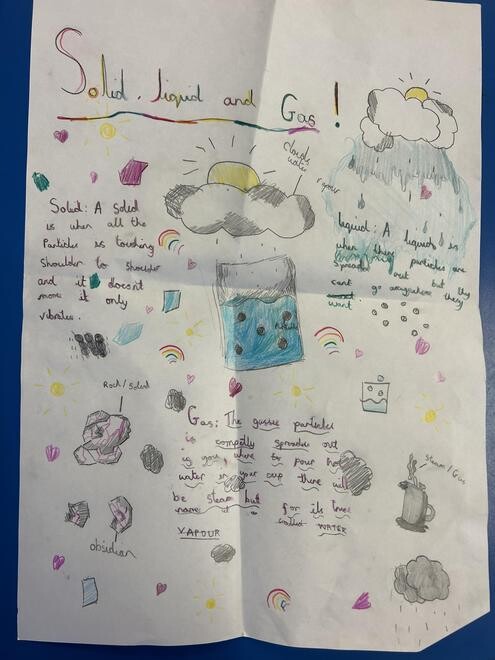 Solid, liquid and Gas!
clouds
water
vapour
Solid: A solid
is when all the
Particles is touching
Shoulder to shoulder
and it doesnt
move it only
vibrates.
liquid: A liquid is
when they particles are
spreads out but they
cant go anywhere they
want
Rock/Soled
obsidian
Gas: The gasses particles
is competly spreade out
is you where to pour hot
water in your cup there will
be steam but
name it for its
called WATER
VAPOUR
Steam/Gas